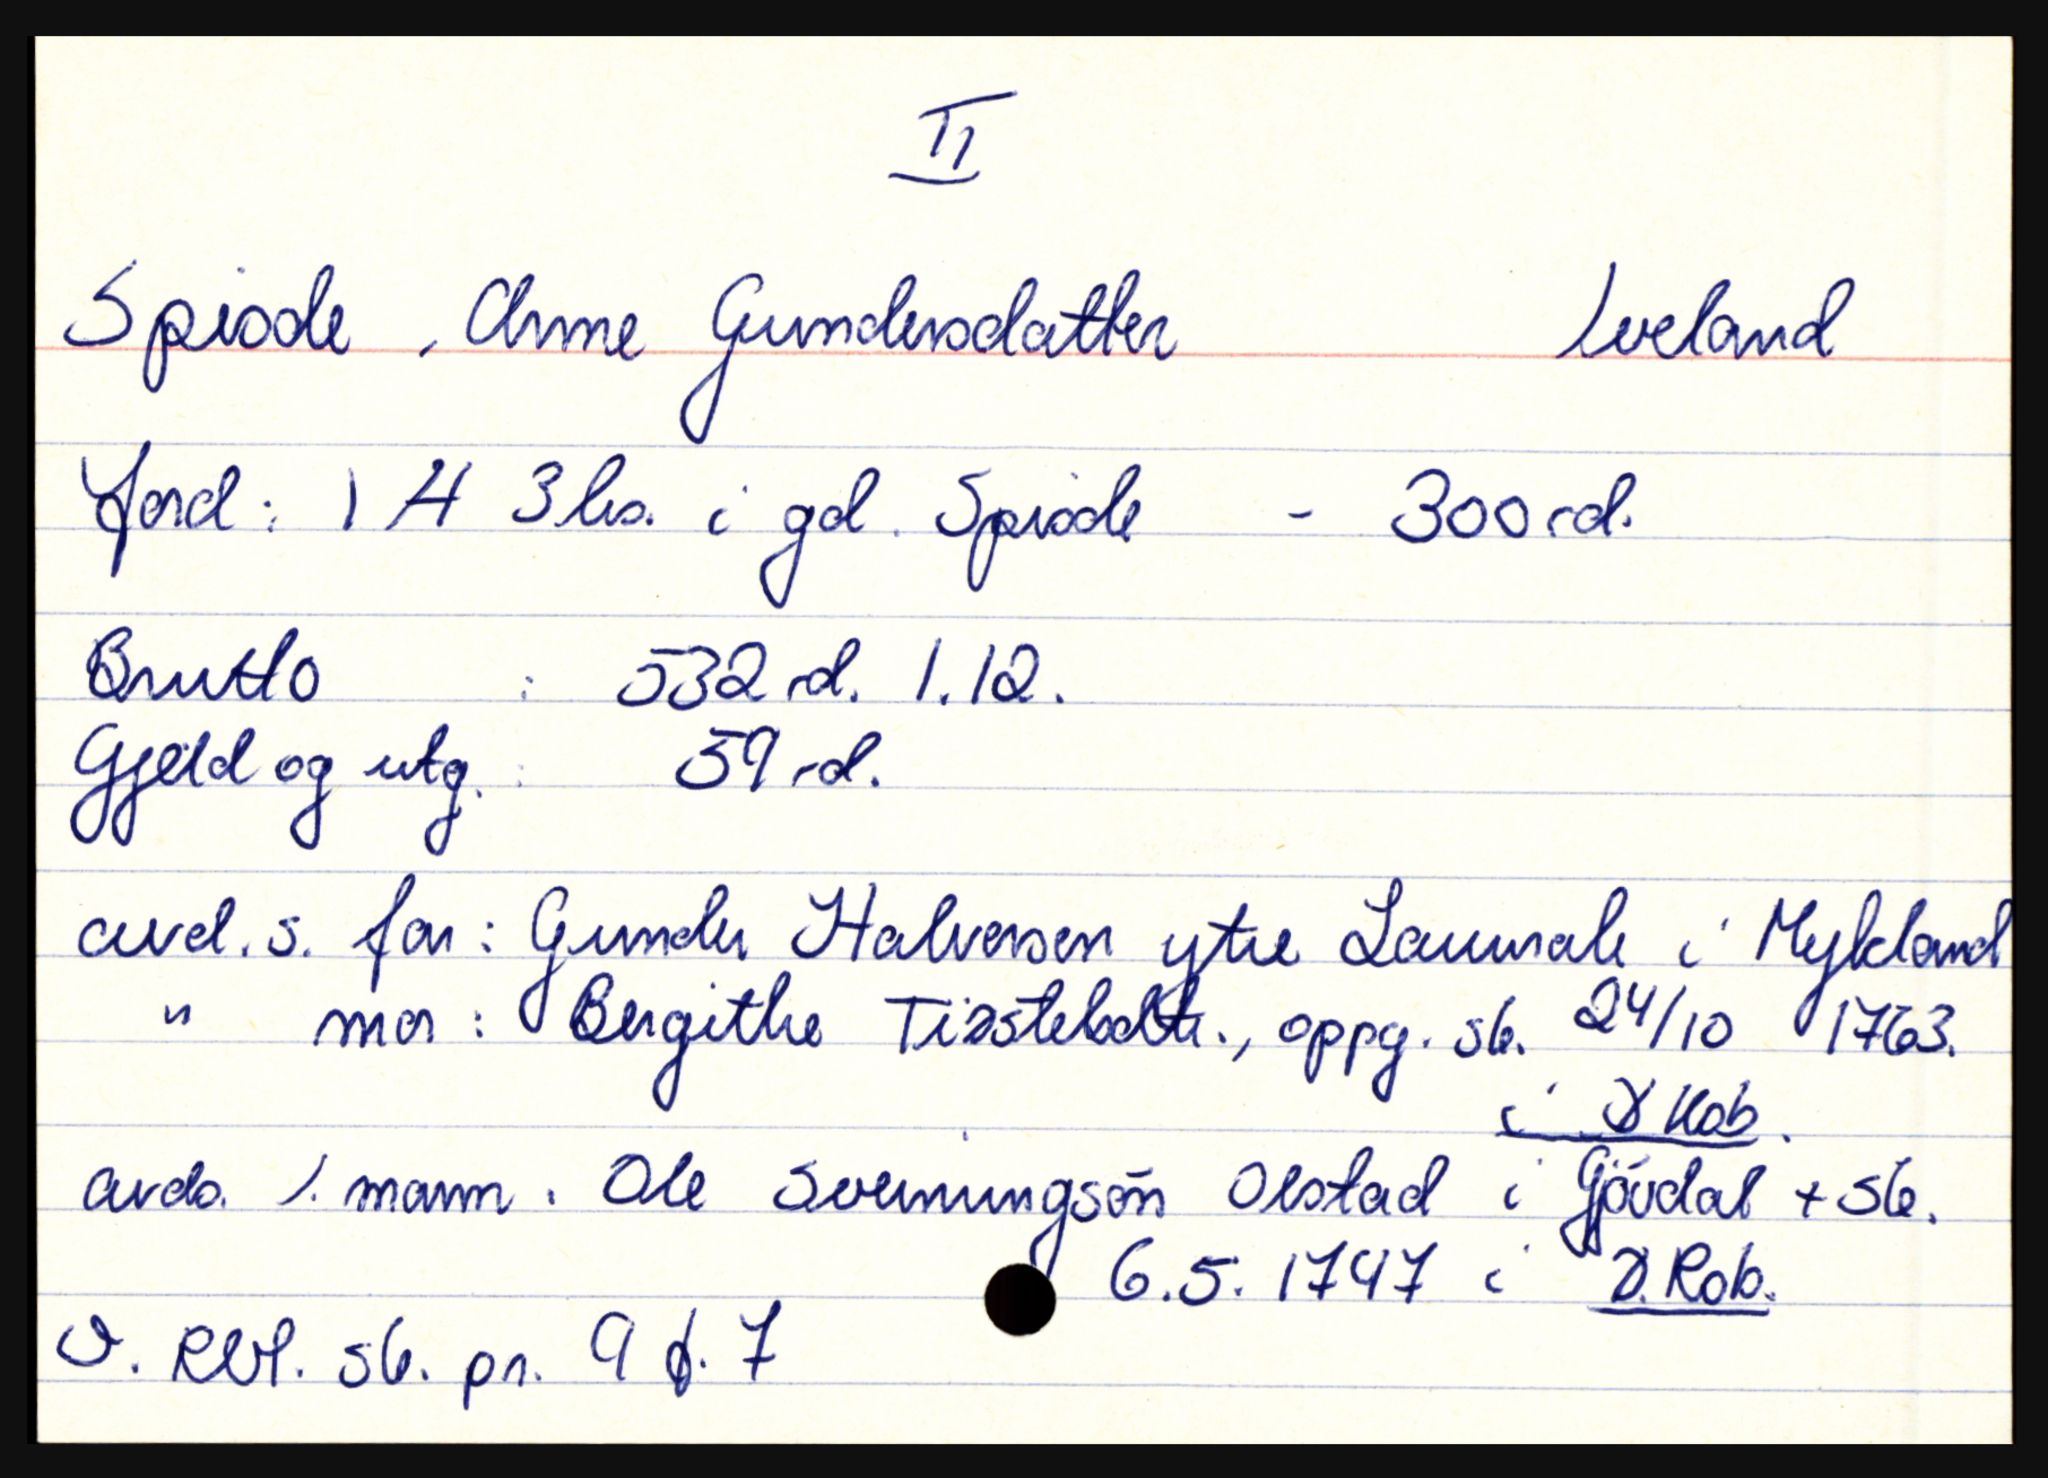 II
Spiode, Anne Gundersdatter Iveland
Jord: 1 H 3 ks. i gd. Spiode - 300 rd.
Brutto : 532 rd. 1.12.
Gjeld og utg. : 59 rd.
arvd. s. far: Gunder Halvorsen ytre Lauvrak i Mykland
" mor: Bergithe Tistelsdtr., oppg. sk. 24/10 1763.
i Ø Rob.
arvds. 1. mann. Ole Sveinungsön Olstad i Gjövdal + sk.
6.5.1747 i Ø. Rob.
V. RVl. sk. pr. 9 f. 7